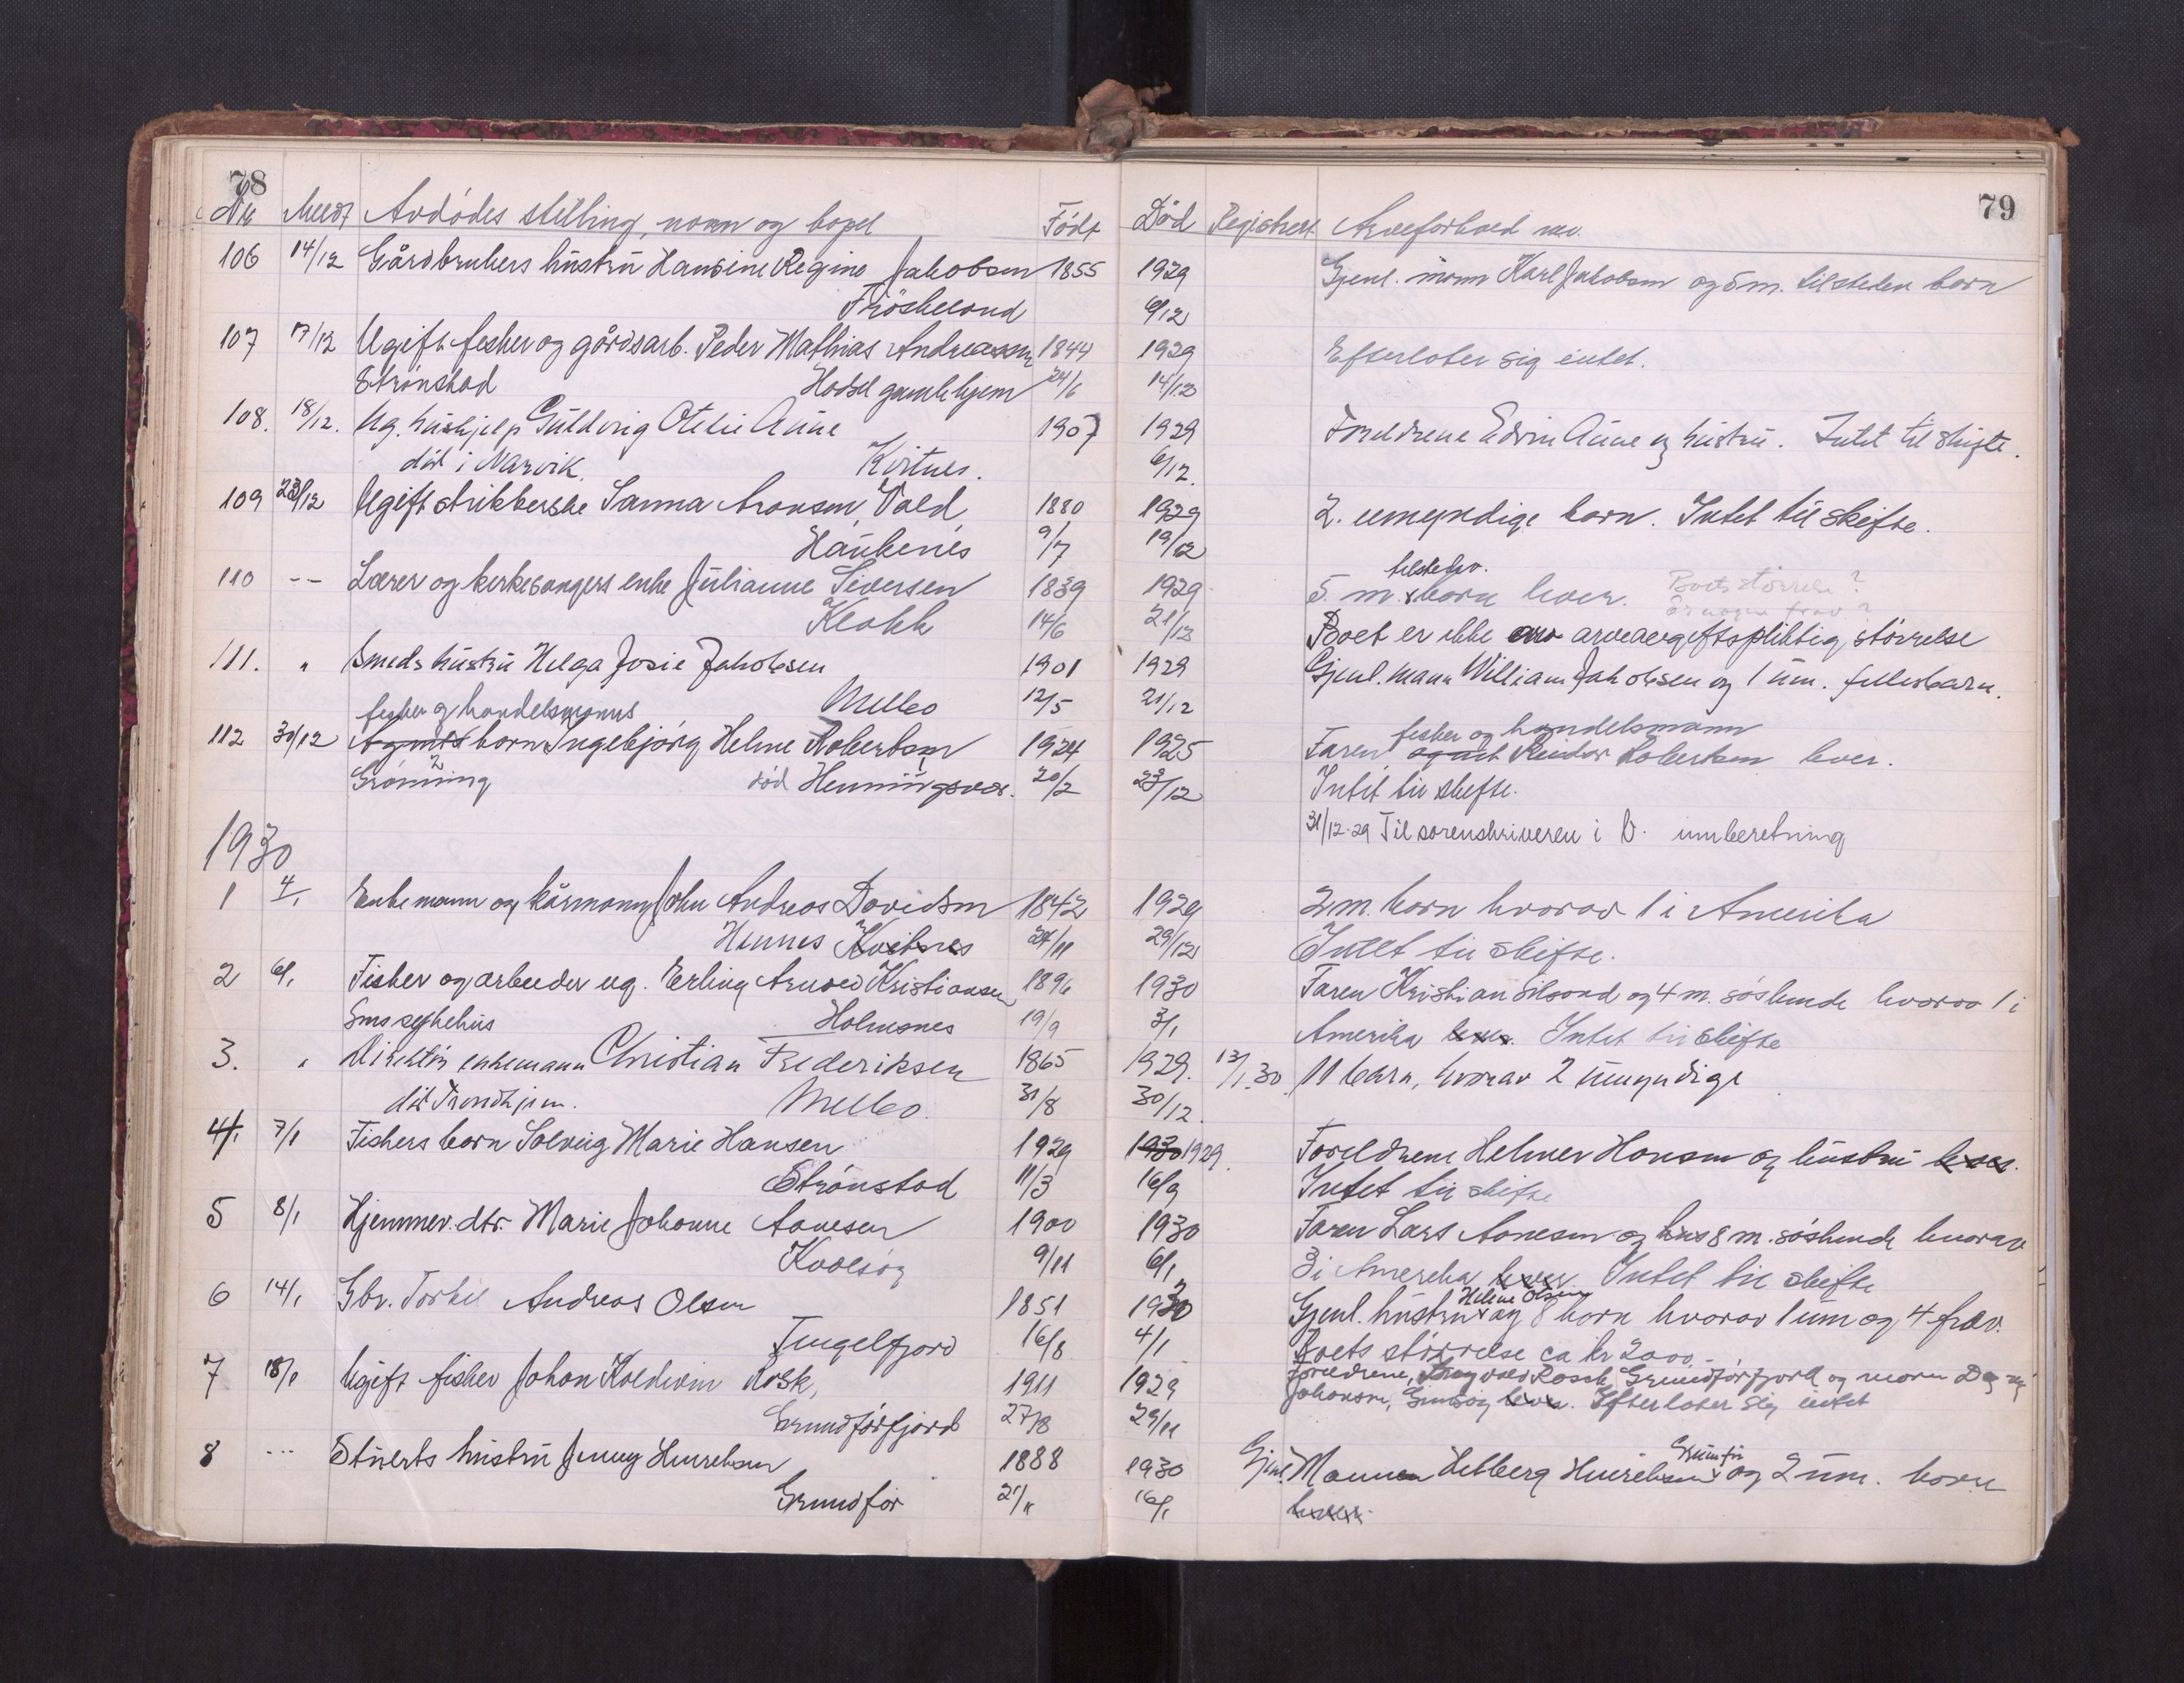 78
79
Nr Meldt Avdødes stilling, navn og bopel Født Død Registrert Arveforhold m.v.
106 14/12 Gårdbrukers hustru Hansine Regine Jakobsen 1855 1929 Gjenl. mann Karl Jakobsen og 5 m. tilstedev. barn
Frøskeland 6/12
107 17/12 Ugift fisker og gårdsarb. Peder Mathias Andreassen 1844 1929 Efterlater sig intet.
Strønstad Hadsel gamlehjem 24/6 14/12
108. 18/12. Ug. hushjelp Guldvig Otelie Aune 1907 1929 Foreldrene Edvin Aune og hustru. Intet til skifte.
død i Narvik. Kvitnes. 6/12.
109 23/12 Ugift strikkerske Sanna Aronsen, Vold 1880 1929 2. umyndige barn. Intet til skifte.
Haukenes 9/7 19/12
110 -- Lærer og kirkesangers enke Julianne Sivertsen 1839 1929 5. m. tilstedev. barn lever. Boets størrelse? Er nogen frav?
Klakk 14/6 21/12 Boet er ikke av arveavgiftspliktig størrelse
111. " Smeds hustru Helga Josie Jakobsen 1901 1929 Gjenl. mann William Jakobsen og 1 um. fellesbarn.
Melbo 12/5 21/12
fisker og handelsmanns
112 30/12 Agents barn Ingebjørg Helene Robertsen 1924 1925 Faren, fisker og handelsmann agent Reidar Robertsen lever.
Grønning død Henningsvær. 20/2 23/12 Intet til skifte.
31/12-29 Til sorenskriveren i V. innberetning
1930
1 4/1 Enkemann og kårmann John Andreas Davidsen 1842 1929 2 m. barn hvorav 1 i Amerika
Hennes Kvitnes 24/11 29/12 Intet til skifte.
2 6/1 Fisker og arbeider ug. Erling Arnved Kristiansen 1896 1930 Faren Kristian Silsand og 4 m. søskende hvorav 1 i
Holmsnes 19/9 3/1 Amerika lever. Intet til skifte
3. " Direktør enkemann Christian Frederiksen 1865 1929. 13/1.30 11 barn, hvorav 2 umyndige
død Trondhjem. Melbo. 31/8 30/12.
4/1 7/1 Fiskers barn Solveig Marie Hansen 1929 1930 1929. Foreldrene Helmer Hansen og hustru lever.
Strønstad 11/3 16/9 Intet til skifte
5 8/1 Hjemmev. dtr. Marie Johanne Aanesen 1900 1930 Faren Lars Aanesen og 8 m. søskende hvorav
9/11 6/1 3 i Amerika lever. Intet til skifte
6 14/1 Gbr. Torkil Andreas Olsen 1851 1930 Gjenl. hustru Helene Olsen og 8 barn hvorav 1 um og 4 frav.
Tengelfjord 16/8 4/1 Boets størrelse ca kr 2000.-
7 18/1 Ugift fisker Johan Koldevin Rosk, 1911 1929 Foreldrene, Rosck Grundførfjord og moren
Grundførfjord 27/8 29/11 Johansen, Gimsøy lever. Efterlater sig intet
8 --- Stuerts hustru Jenny Henriksen 1888 1930 Gjenl. Mannen Hilberg Henriksen Grunnfør og 2 um. barn
Grundfør 21/11 16/1 lever.